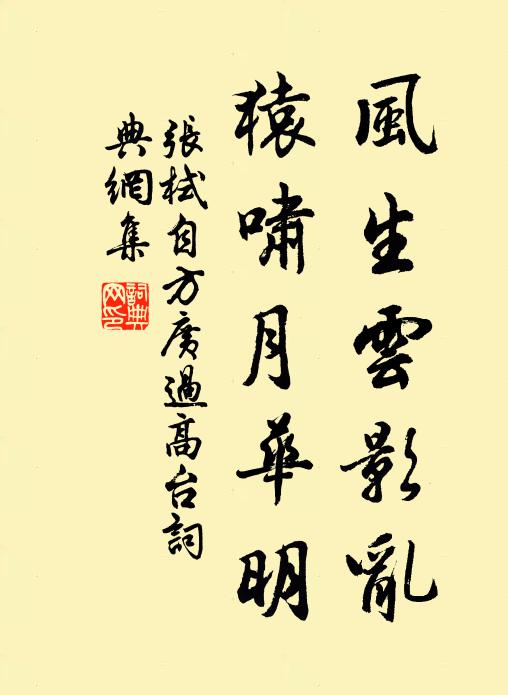 風生雲影亂
猿嘯月華明
張栻自方廣過高台詞
典網集
詞典
网印